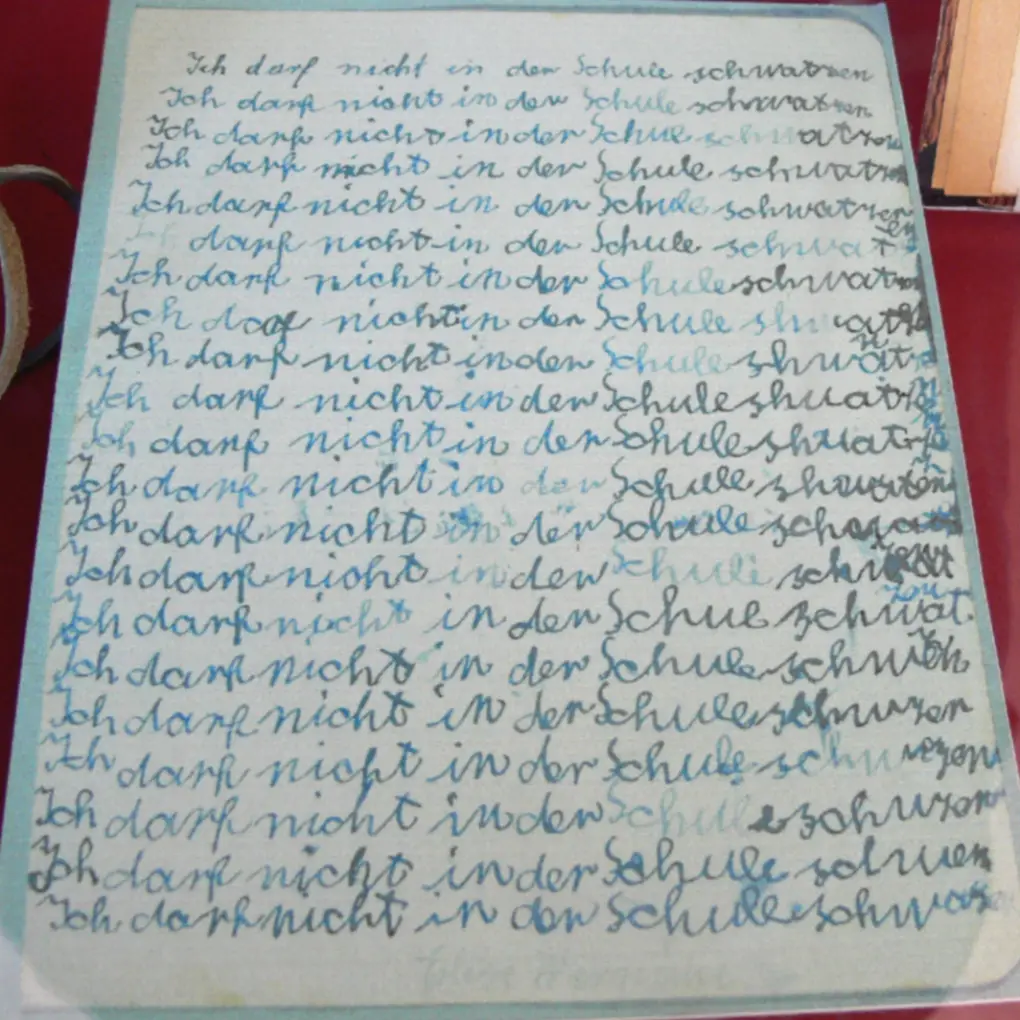 Ich darf nicht in der Schule schwatzen
Ich darf nicht in der Schule schwatzen
Ich darf nicht in der Schule schwatzen
Ich darf nicht in der Schule schwatzen
Ich darf nicht in der Schule schwatzen
Ich darf nicht in der Schule schwatzen
Ich darf nicht in der Schule schwatzen
Ich darf nicht in der Schule
Ich darf nicht in der Schule
Ich darf nicht in der Schule
Ich darf nicht in der Schule
Ich darf nicht in der Schule
Ich darf nicht in der Schule
Ich darf nicht in der Schule
Ich darf nicht in der Schule schwat
Ich darf nicht in der Schule
Ich darf nicht in der Schule
Ich darf nicht in der Schule
Ich darf nicht in der Schule
Ich darf nicht in der Schule
Ich darf nicht in der Schule